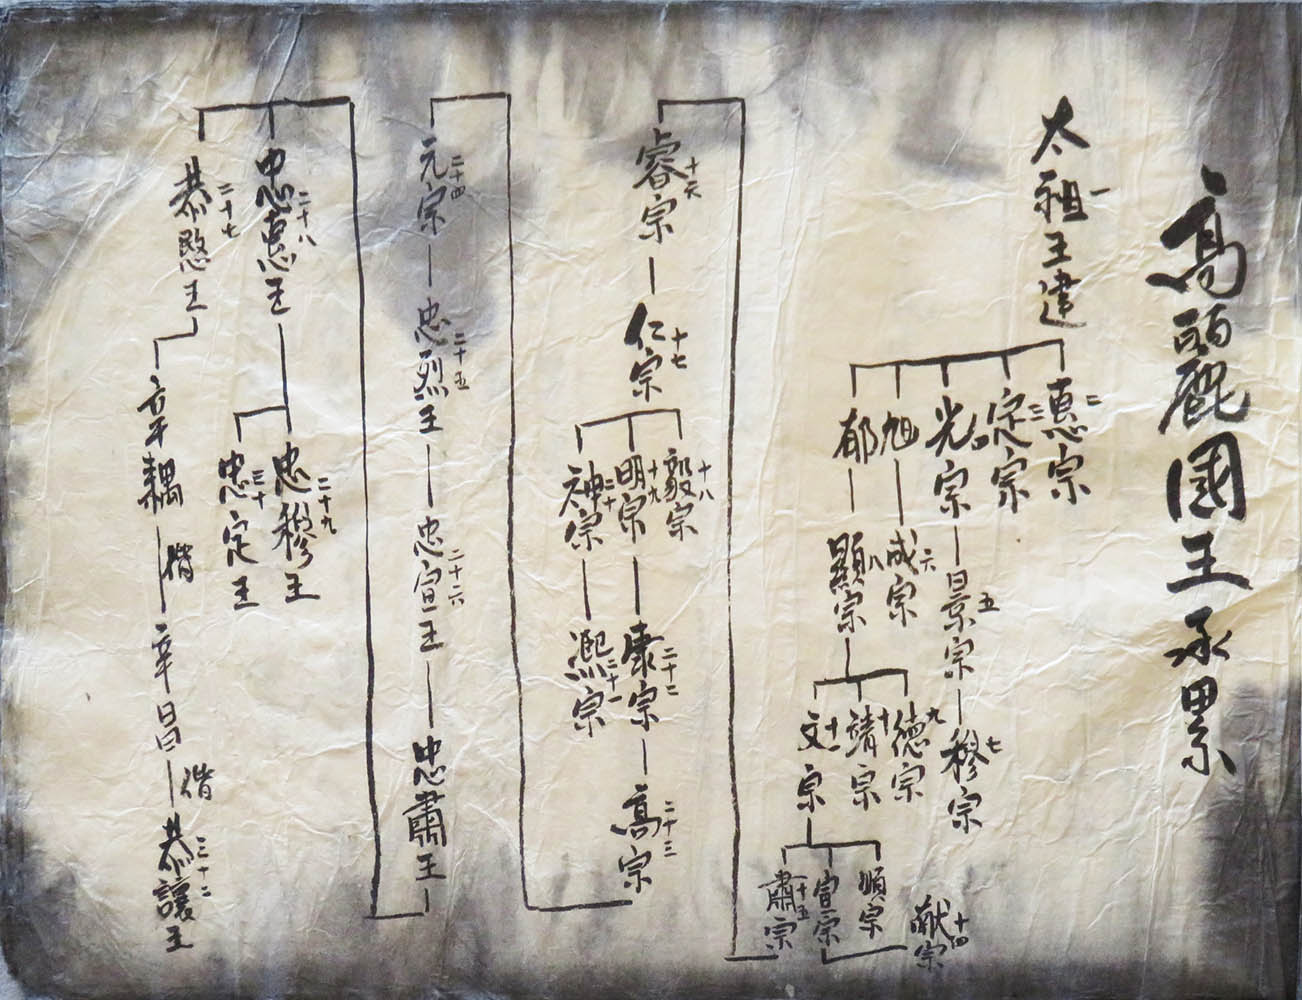 高麗國王承累
太祖王建 一
惠宗 二
定宗 三
光宗 四
旭
郁
景宗 五
成宗 六
顯宗 八
穆宗 七
德宗 九
靖宗 十
文宗 十一
順宗
宣宗
肅宗 十五
献宗 十四
睿宗 十六
仁宗 十七
毅宗 十八
明宗 十九
神宗 二十
康宗 二十二
熙宗 二十一
高宗 二十三
元宗 二十四
忠烈王 二十五
忠宣王 二十六
忠肅王
忠惠王 二十八
恭愍王 二十七
忠穆王 二十九
忠定王 三十
辛耦 偕
辛昌 偕
恭讓王 三十二